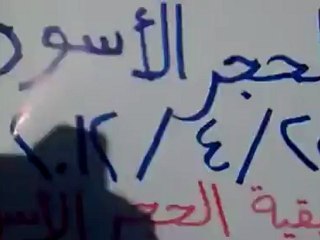 لحجر الأسود
٢٠١٢/٤/٢
يقية الحجر الأسو